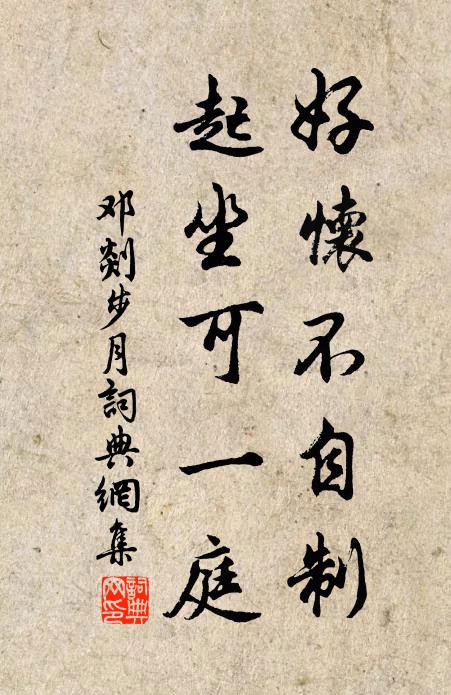 好懷不自制
起坐可一庭
邓剡步月詞典網集
詞典
网印